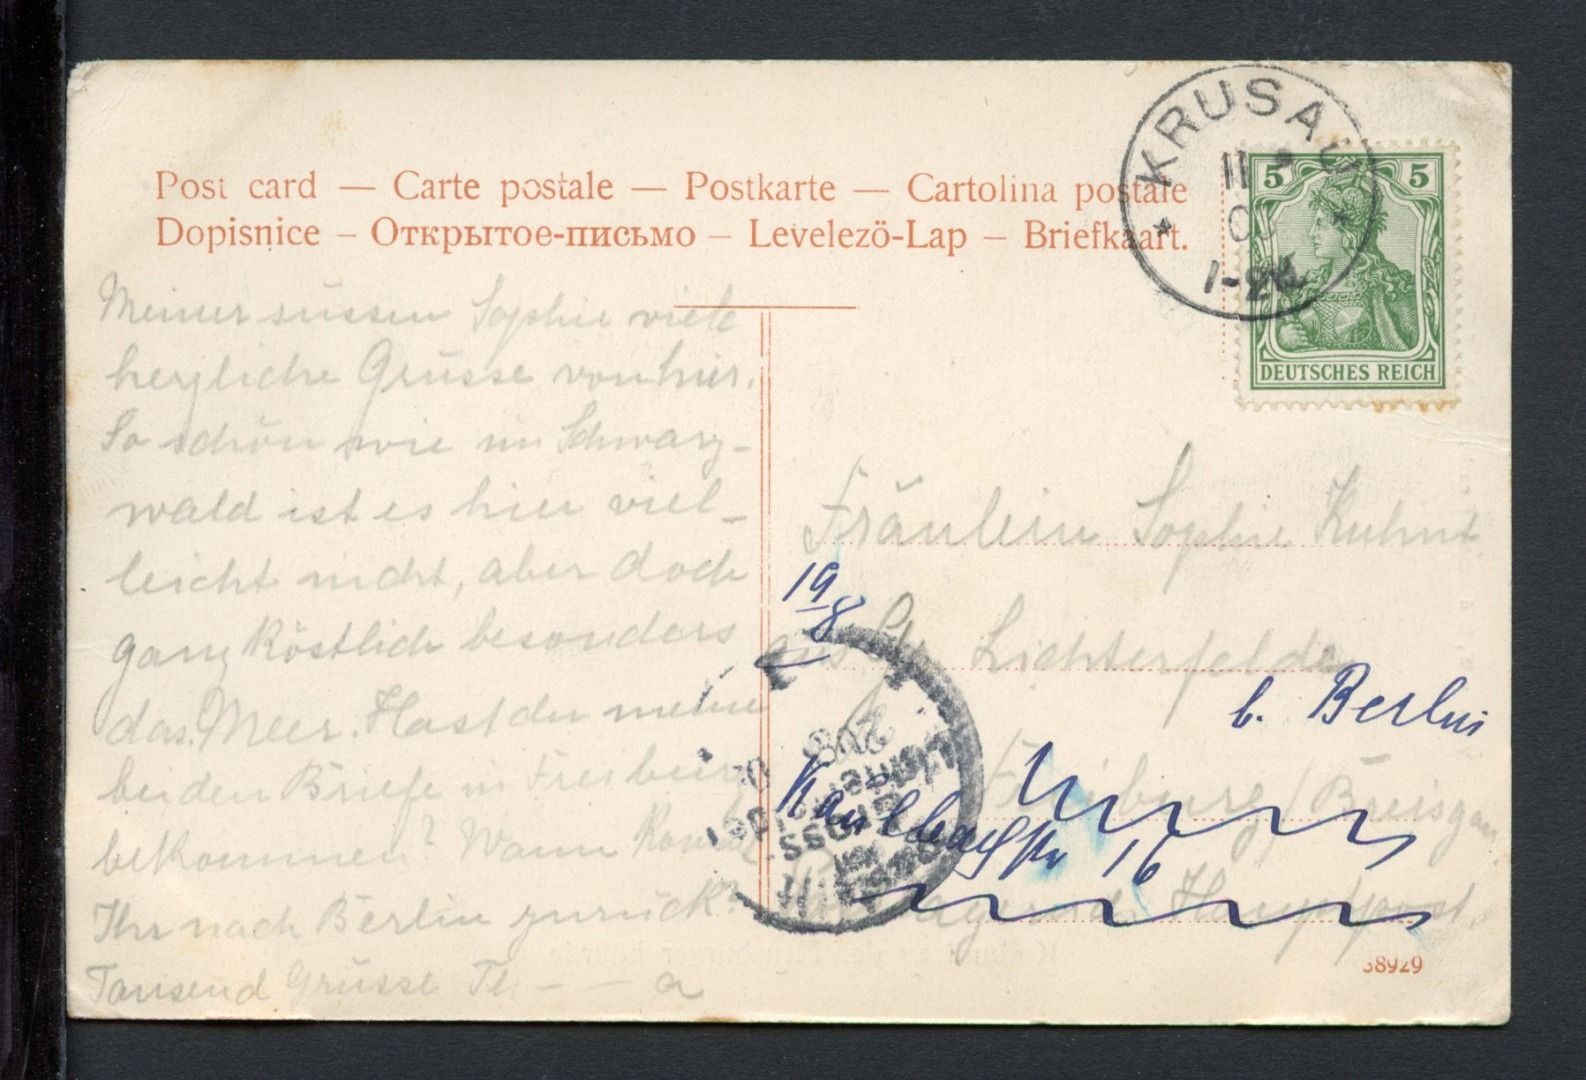 Post card — Carte postale — Postkarte — Cartolina postale
Dopisnice – Открытое-письмо – Levelezö-Lap – Briefkaart.
KRUSAU
1-2N
5 5
DEUTSCHES REICH
Meiner süssen Sophie viele
herzliche Grüsse von hier.
So schön wie im Schwarz-
wald ist es hier viel-
leicht nicht, aber doch
ganz köstlich besonders
das Meer. Hast du meine
beiden Briefe in Freiburg
bekommen? Wann kommt
Ihr nach Berlin zurück?
Tausend Grüsse Te - - a
Fräulein Sophie Kuhnt
19/8
aus Gr. Lichterfelde
b. Berlin
Freiburg / Breisgau
Kaulbachstr 16
lagernd Hauptpost